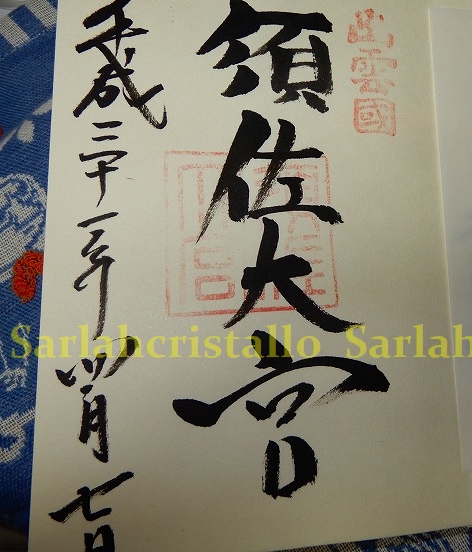 出雲國
須佐大宮
平成三十一年四月七日
Sarlahcristallo Sarlah